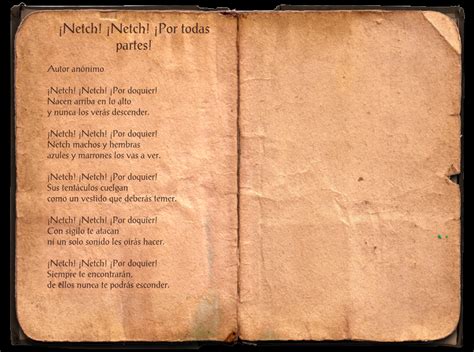 ¡Netch! ¡Netch! ¡Por todas
partes!
Autor anónimo
¡Netch! ¡Netch! ¡Por doquier!
Nacen arriba en lo alto
y nunca los verás descender.
¡Netch! ¡Netch! ¡Por doquier!
Netch machos y hembras
azules y marrones los vas a ver.
¡Netch! ¡Netch! ¡Por doquier!
Sus tentáculos cuelgan
como un vestido que deberás temer.
¡Netch! ¡Netch! ¡Por doquier!
Con sigilo te atacan
ni un solo sonido les oirás hacer.
¡Netch! ¡Netch! ¡Por doquier!
Siempre te encontrarán,
de ellos nunca te podrás esconder.